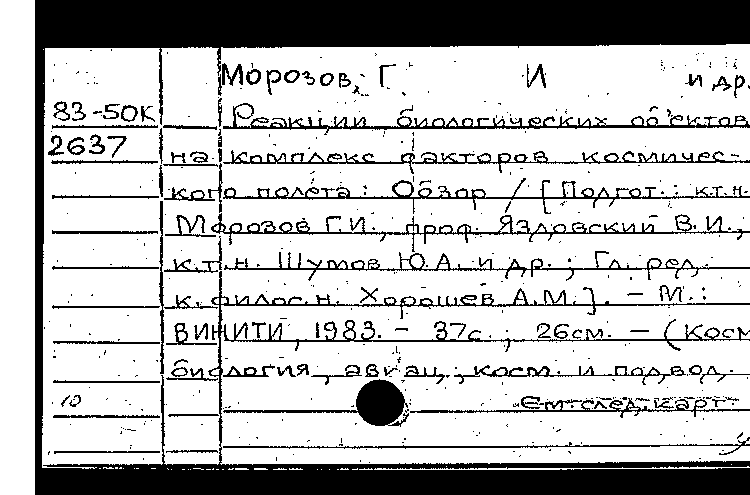 Морозов, Г. И и др.
83-50К Реакции биологических объектов
2637 на комплекс факторов космичес-
кого полета: Обзор / [Подгот.: к.т.н.
Морозов Г.И., проф. Яздовский В.И.,
к.т.н. Шумов Ю.А. и др.; Гл. ред.
к.филос.н. Хорошев А.М.]. - М.:
ВИНИТИ, 1983. - 37с.; 26см. - (Косм
биология, авиац., косм. и подвод.
10 См. след. карт.